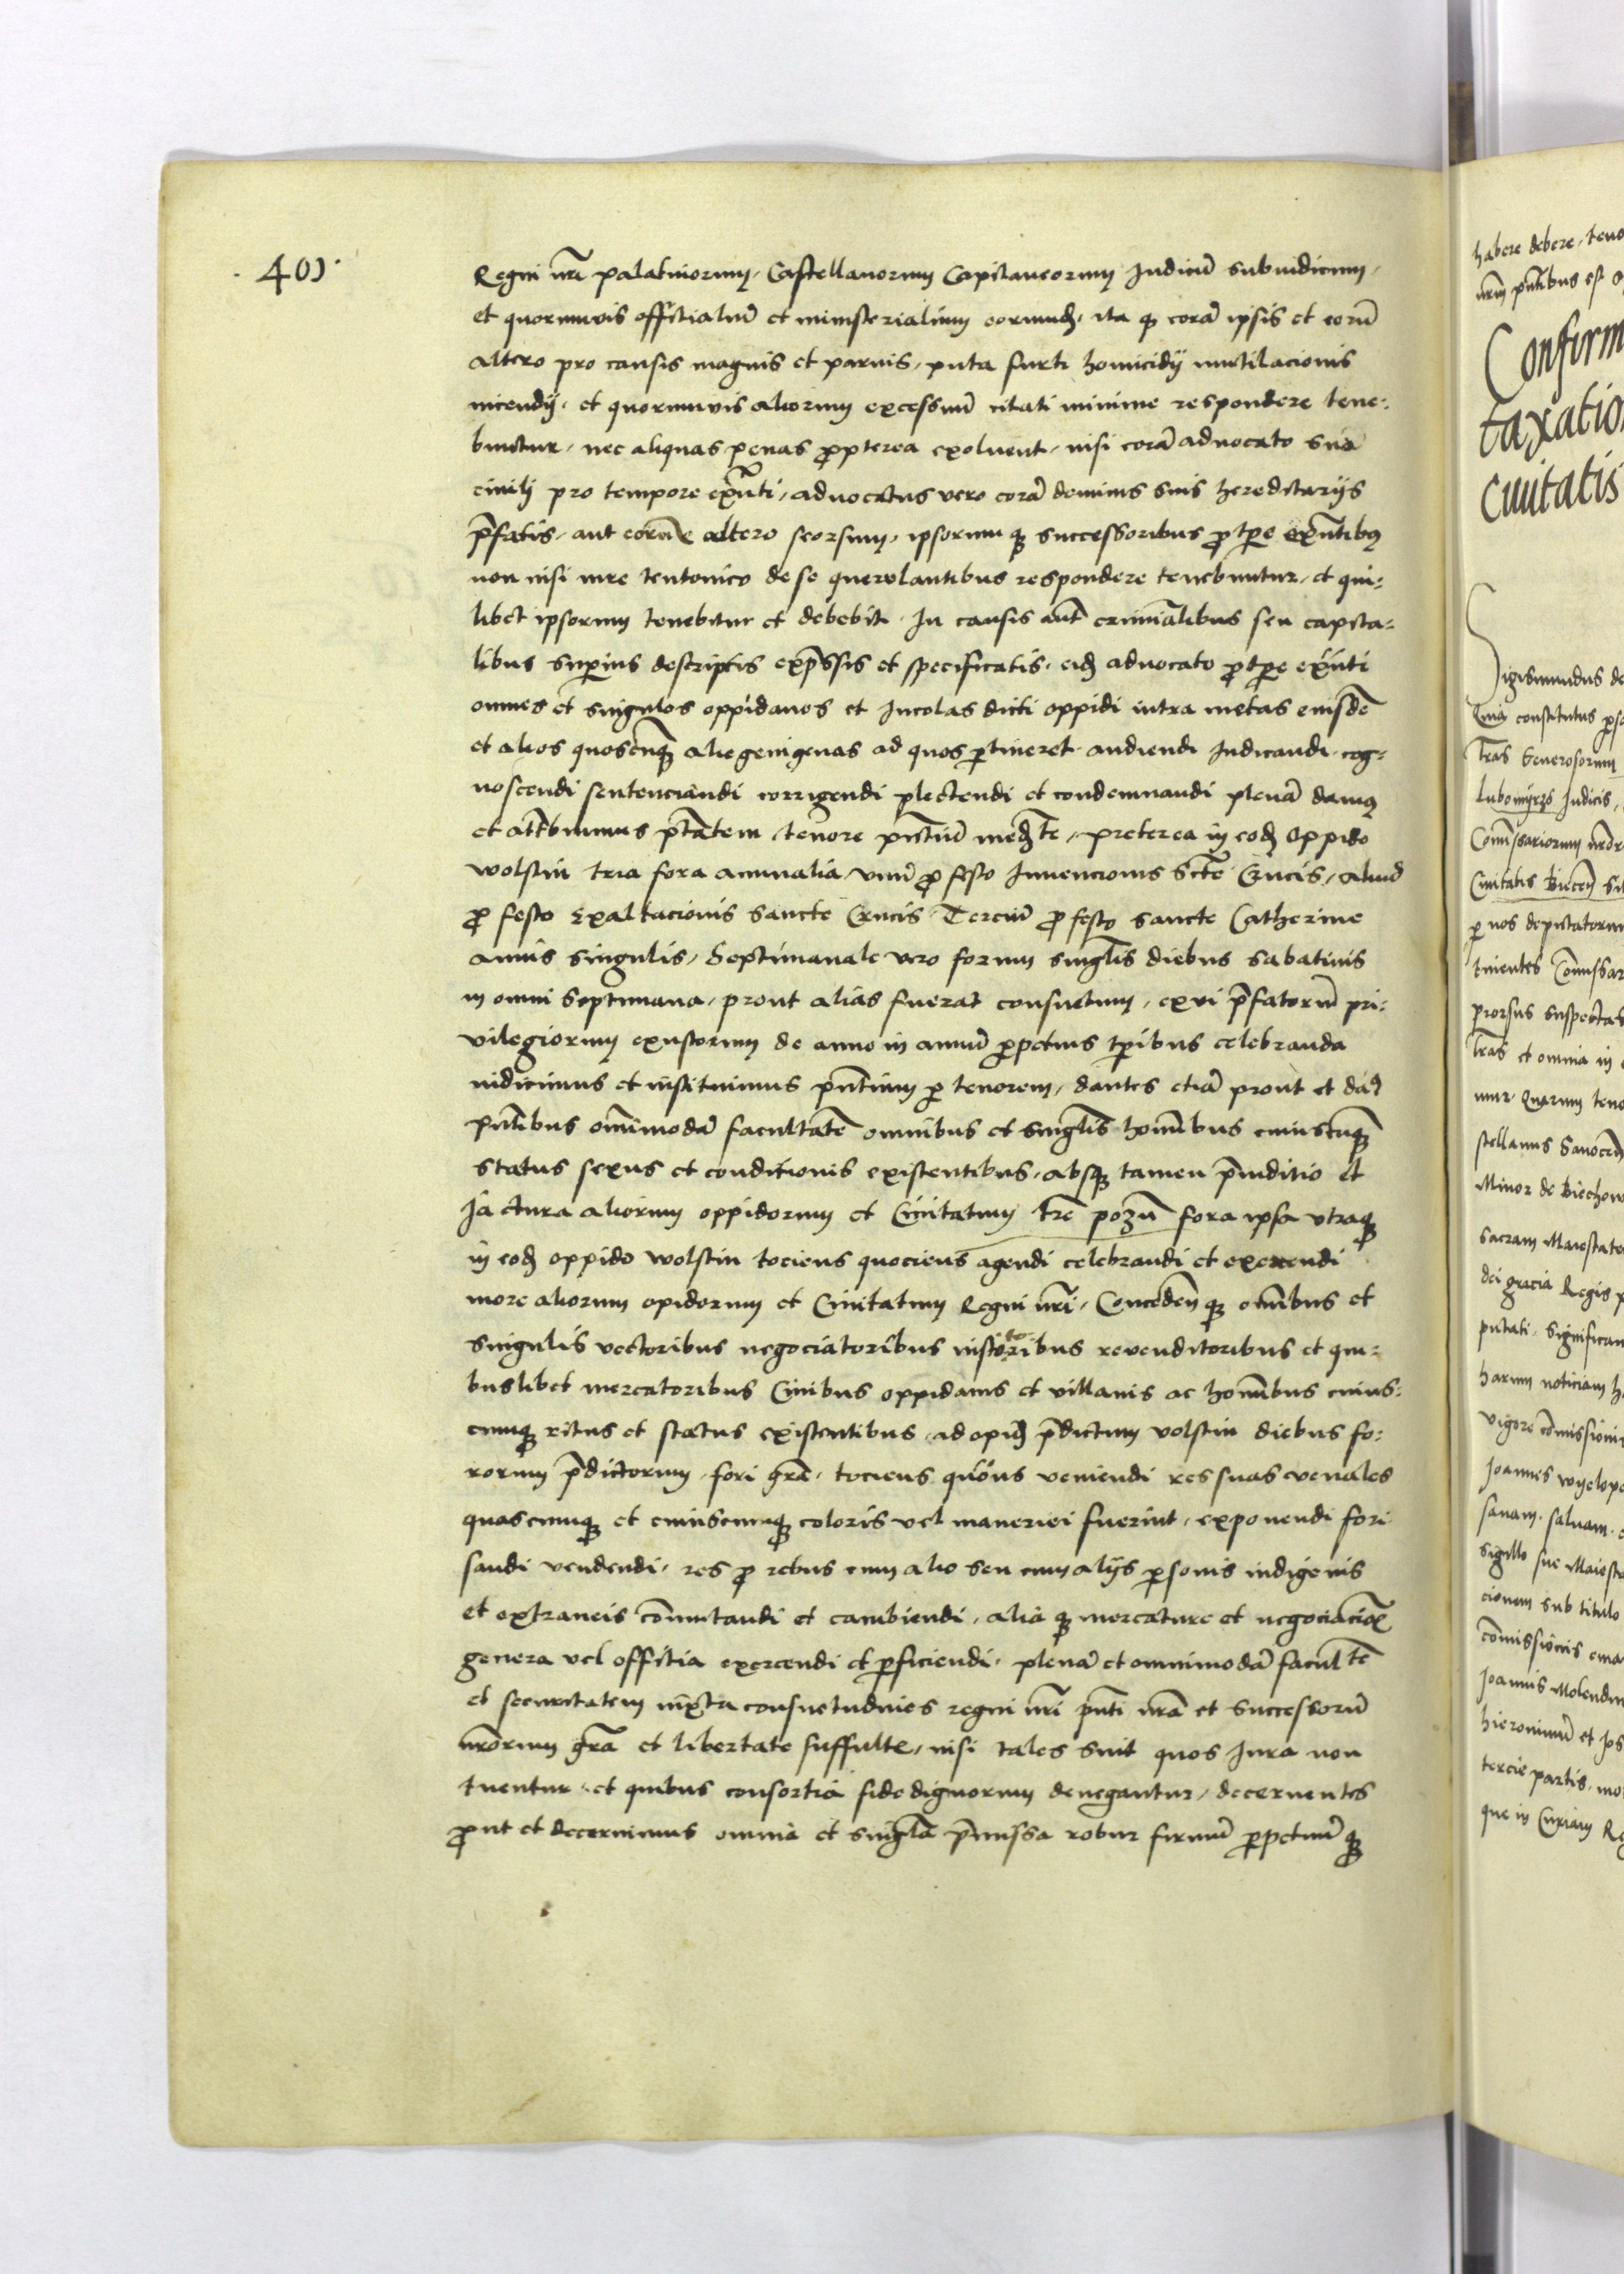 · 401 ·
Regni nrī palatinorum, Castellanorum Capitaneorum Judicū subiudicum,
et quorumvis officialiū et ministerialium eorundꝫ, ita qꝫ corā ipsis et eorū
altero pro causis magnis et parvis, puta furti homicidij mutilacionis
incendij, et quorumvis aliorum excessuū citati minime respondere tene-
buntur, nec aliquas penas ꝓpterea exolvent, nisi corā advocato suo
civilj pro tempore exn̄ti, advocatus vero corā dominis suis hereditarijs
p̄fatis, aut eorūe altero seorsum, ipsorumqꝫ successoribus ꝓ tp̄e exn̄tibꝫ
non nisi iure teutonico de se querelantibus respondere tenebuntur, et qui-
libet ipsorum tenebitur et debebit. In causis aut̄ criminālibus seu capita-
libus superius descriptis exp̄ssis et specificatis, eidꝫ advocato ꝓ tp̄e exn̄ti
omnes et singulos oppidanos et Incolas dicti oppidi intra metas eiusdē
et alios quoscūqꝫ aliegenigenas ad quos ꝑtineret audiendi Judicandi cog-
noscendi sentenciandi corrigendi plectendi et condemnandi plenā damꝫ
et attribuimus p̄tātem, tenore pn̄tiū medꝫte, preterea in eodꝫ oppido
wolstin tria fora annualia, unū ꝓ festo Invencionis Sctē Crucis, aliud
ꝓ festo Exaltacionis sancte Crucis Terciū ꝓ festo sancte Catherine
annis singulis, Septimanale vero forum singl̄is diebus sabativis
in omni septimana, prout alias fuerat consuetum, ex vi p̄fatorū pri-
vilegiorum exustorum de anno in annū ꝑpetuis tp̄ibus celebranda
indicimus et instituimus pn̄tium ꝑ tenorem, dantes etiā prout et dam̄
pn̄tibus om̄imodā facultatē omnibus et singl̄is hom̄ibus cuiuscūqꝫ
status sexus et conditionis existentibus, absqꝫ tamen p̄iuditio et
Jactura aliorum oppidorum et Civitatum tr̄e pozn̄ fora ipsa utraqꝫ
in eodꝫ oppido wolstin tociens quociens agendi celebrandi et exercendi
more aliorum opidorum et Civitatum Regni nrī, Conceden̄ qꝫ om̄ibus et
singulis vectoribus negociatoribus institoribus revenditoribus et qui-
buslibet mercatoribus Civibus oppidanis et villanis ac hom̄ibus cuius-
cumqꝫ ritus et status existentibus, ad opidꝫ p̄dictum volstin diebus fo-
rorum p̄dictorum, fori grā, tociens quō̄ns veniendi res suas venales
quascumqꝫ et cuiuscumqꝫ coloris vel maneriei fuerint, exponendi fori
sandi vendendi, res ꝓ rebus cum alio seu cum alijs ꝑsonis indigenis
et extraneis cōmutandi et cambiendi, alia qꝫ mercature et negociaciō̄
genera vel offitia exercendi et ꝑficiendi, plenā et omnimodā facultē
et securitatem iuxta consuetudines regni nrī pn̄ti nrā et successorū
nrōrum grā et libertate suffulte, nisi tales sint quos Jura non
tuentur, et quibus consortia fidedignorum denegantur, decernentes
ꝓut et decernimus omnia et singl̄a p̄missa robur firmū ꝑpetuū qꝫ
habere debere, teno
nrm̄ pn̄tibus est
Confirm
taxatio
Civitatis
Sigismundus de
Quia constitutus
lr̄as Generosorum
Lubomyrzs Judicis,
Com̄issariorum
Civitatis Biecen̄
ꝑ nos deputatorum
tinentes Com̄issar
prorsus suspectas
lr̄as et omnia in
mur Quarum teno
stellanus Sanocen̄
Minor de Biechow
Sacram Maiestate
dei gracia Regis p
putati, Significam
harum noticiam h
vigore com̄issionis
Joannes wyelopo
sanam, salvam,
sigillo sue Maiesta
cionem sub titulo
com̄issionis ema
Joannis Molendin
hieronimū et Jos
tercie partis, mo
que in Curiam Re